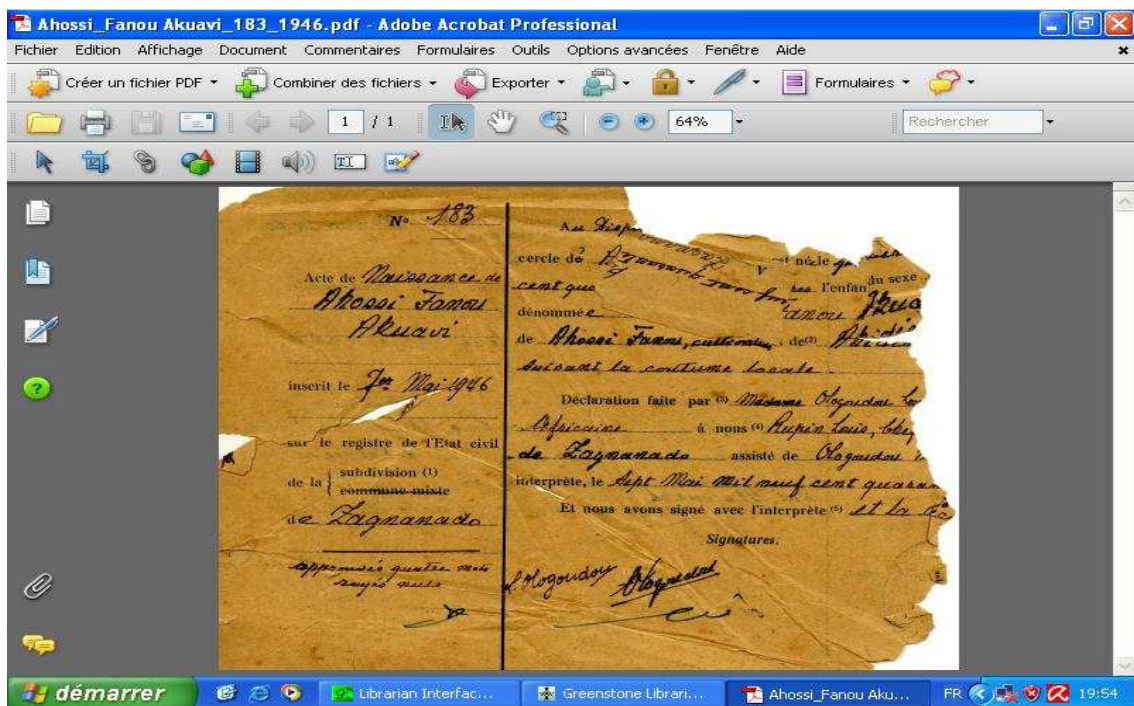 Ahossi_Fanou Akuavi_183_1946.pdf - Adobe Acrobat Professional
Fichier Edition Affichage Document Commentaires Formulaires Outils Options avancées Fenêtre Aide
Créer un fichier PDF Combiner des fichiers Exporter Formulaires
1 / 1 64% Rechercher
No 183
Acte de Naissance de
Ahossi Fanou
Akuavi
inscrit le 7 Mai 1946
sur le registre de l'Etat civil
de la subdivision (1)
commune mixte
de Zagnanado
quatre mots
rayés nuls
Au
cercle de est né le
cent que l'enfant du sexe
dénommée anou
de Ahossi Fanou, de (2)
suivant la coutume locale
Déclaration faite par (3) Madame Ologoudou
Africaine à nous (4) Rupin Louis,
de Zagnanado assisté de Ologoudou
interprète, le Sept Mai mil neuf cent
Et nous avons signé avec l'interprète (5) et la
Signatures.
Ologoudou Ologoudou
démarrer Librarian Interfac... Greenstone Librari... Ahossi_Fanou Aku... FR 19:54